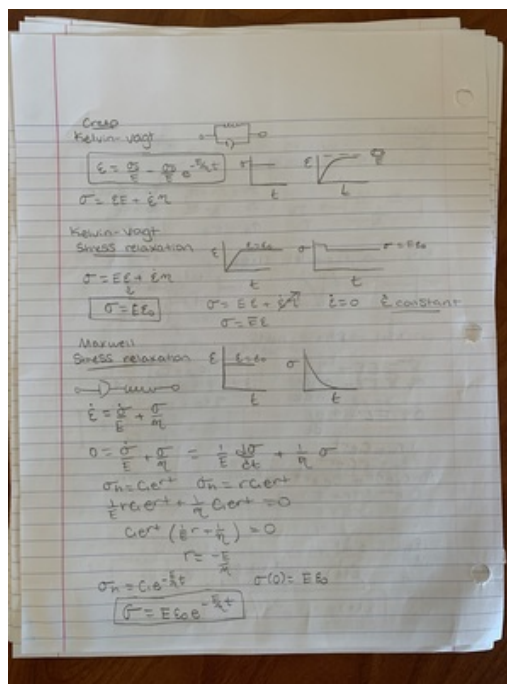 Creep
Kelvin-Vogt
ε = σ₀/E - σ₀/E e^(-E/η t)
σ ε
t t
σ = εE + ε̇η
Kelvin-Vogt
Stress relaxation
ε ε=ε₀ σ σ=Eε₀
t t
σ = Eε + ε̇η
σ = Eε₀
σ = Eε + ε̇η ε̇=0 ε constant
σ = Eε
Maxwell
Stress relaxation
ε ε=ε₀ σ
t t
ε̇ = σ̇/E + σ/η
0 = σ̇/E + σ/η = 1/E dσ/dt + 1/η σ
σₕ = c₁e^(rt) σ̇ₕ = rc₁e^(rt)
1/E rc₁e^(rt) + 1/η c₁e^(rt) = 0
c₁e^(rt) (1/E r + 1/η) = 0
r = -E/η
σₕ = c₁e^(-E/η t) σ(0) = Eε₀
σ = Eε₀e^(-E/η t)